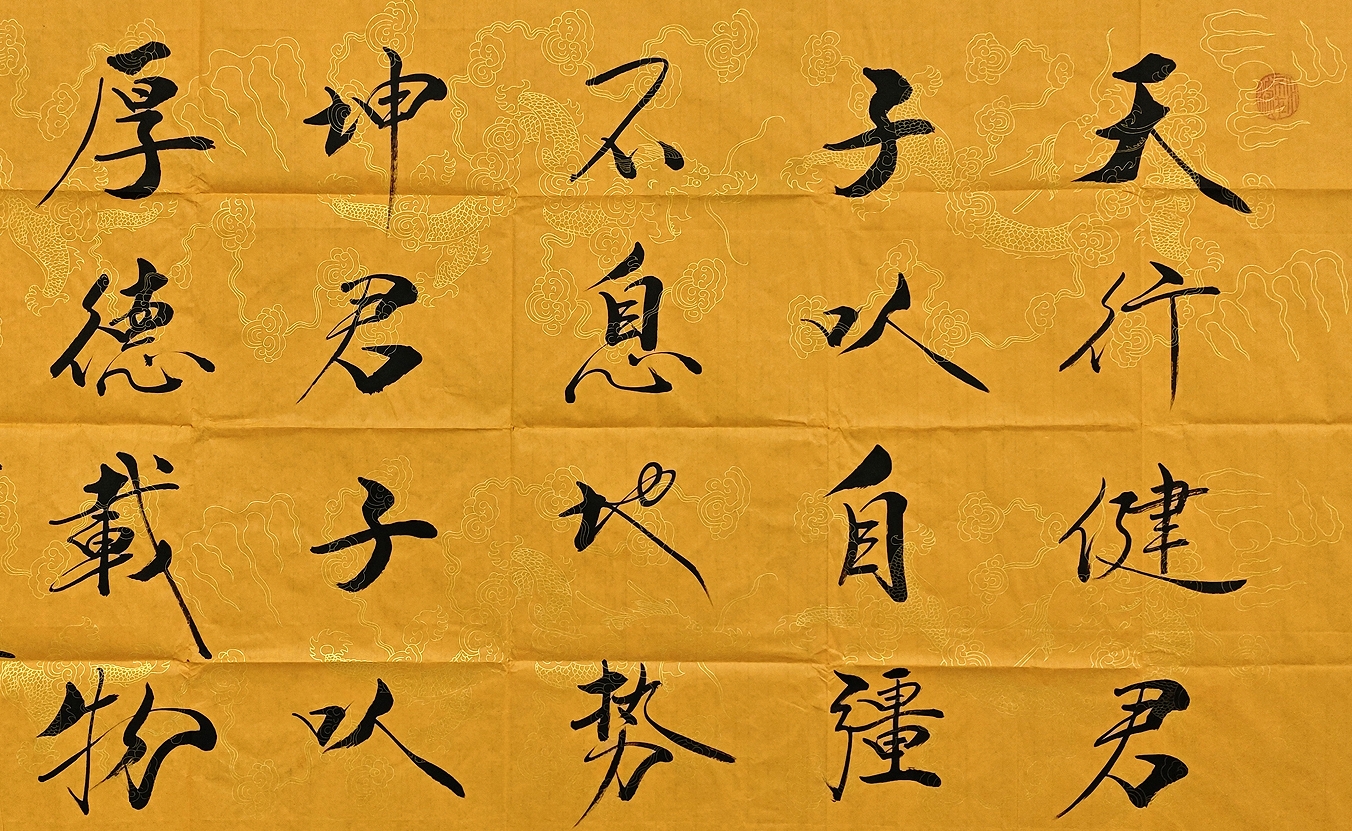 天行健君
子以自彊
不息地勢
坤君子以
厚德載物